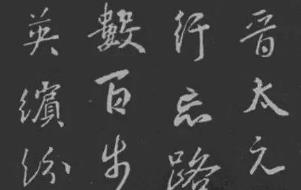 晋太元
行忘路
數百步
英繽紛